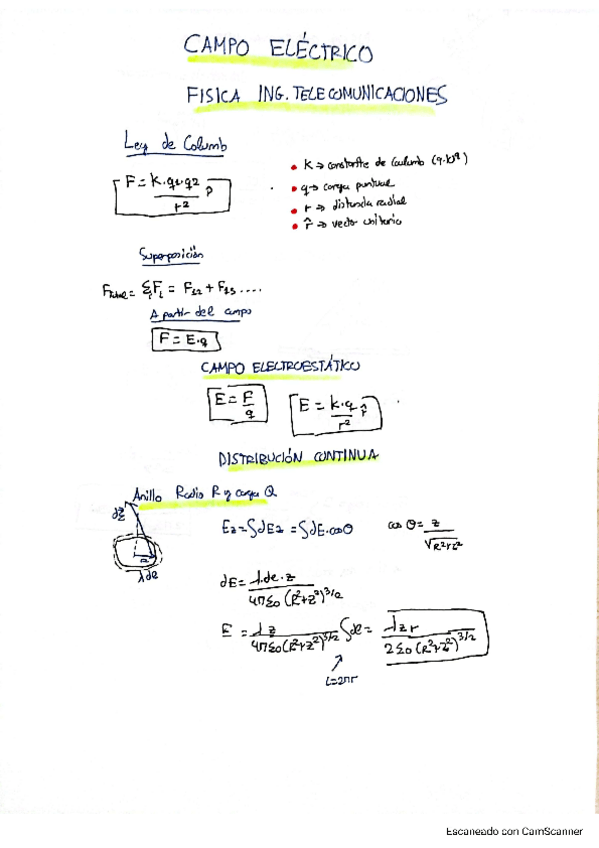 CAMPO ELÉCTRICO
FISICA ING. TELECOMUNICACIONES
Ley de Columb
F = K·q1·q2 / r² r̂
• K → constante de Coulumb (9·10⁹)
• q → carga puntual
• r → distancia radial
• r̂ → vector unitario
Superposición
Ftotal = Σi Fi = F12 + F13 ....
A partir del campo
F = E·q
CAMPO ELECTROESTÁTICO
E = F / q
E = k·q / r² r̂
DISTRIBUCIÓN CONTINUA
Anillo Radio R y carga Q
Ez = ∫dEz = ∫dE·cosθ
cos θ = z / √R²+z²
dE = λ·de·z / 4πε0 (R²+z²)^3/2
E = λz / 4πε0(R²+z²)^3/2 ∫de = λzr / 2ε0 (R²+z²)^3/2
L=2πr
λde
Escaneado con CamScanner